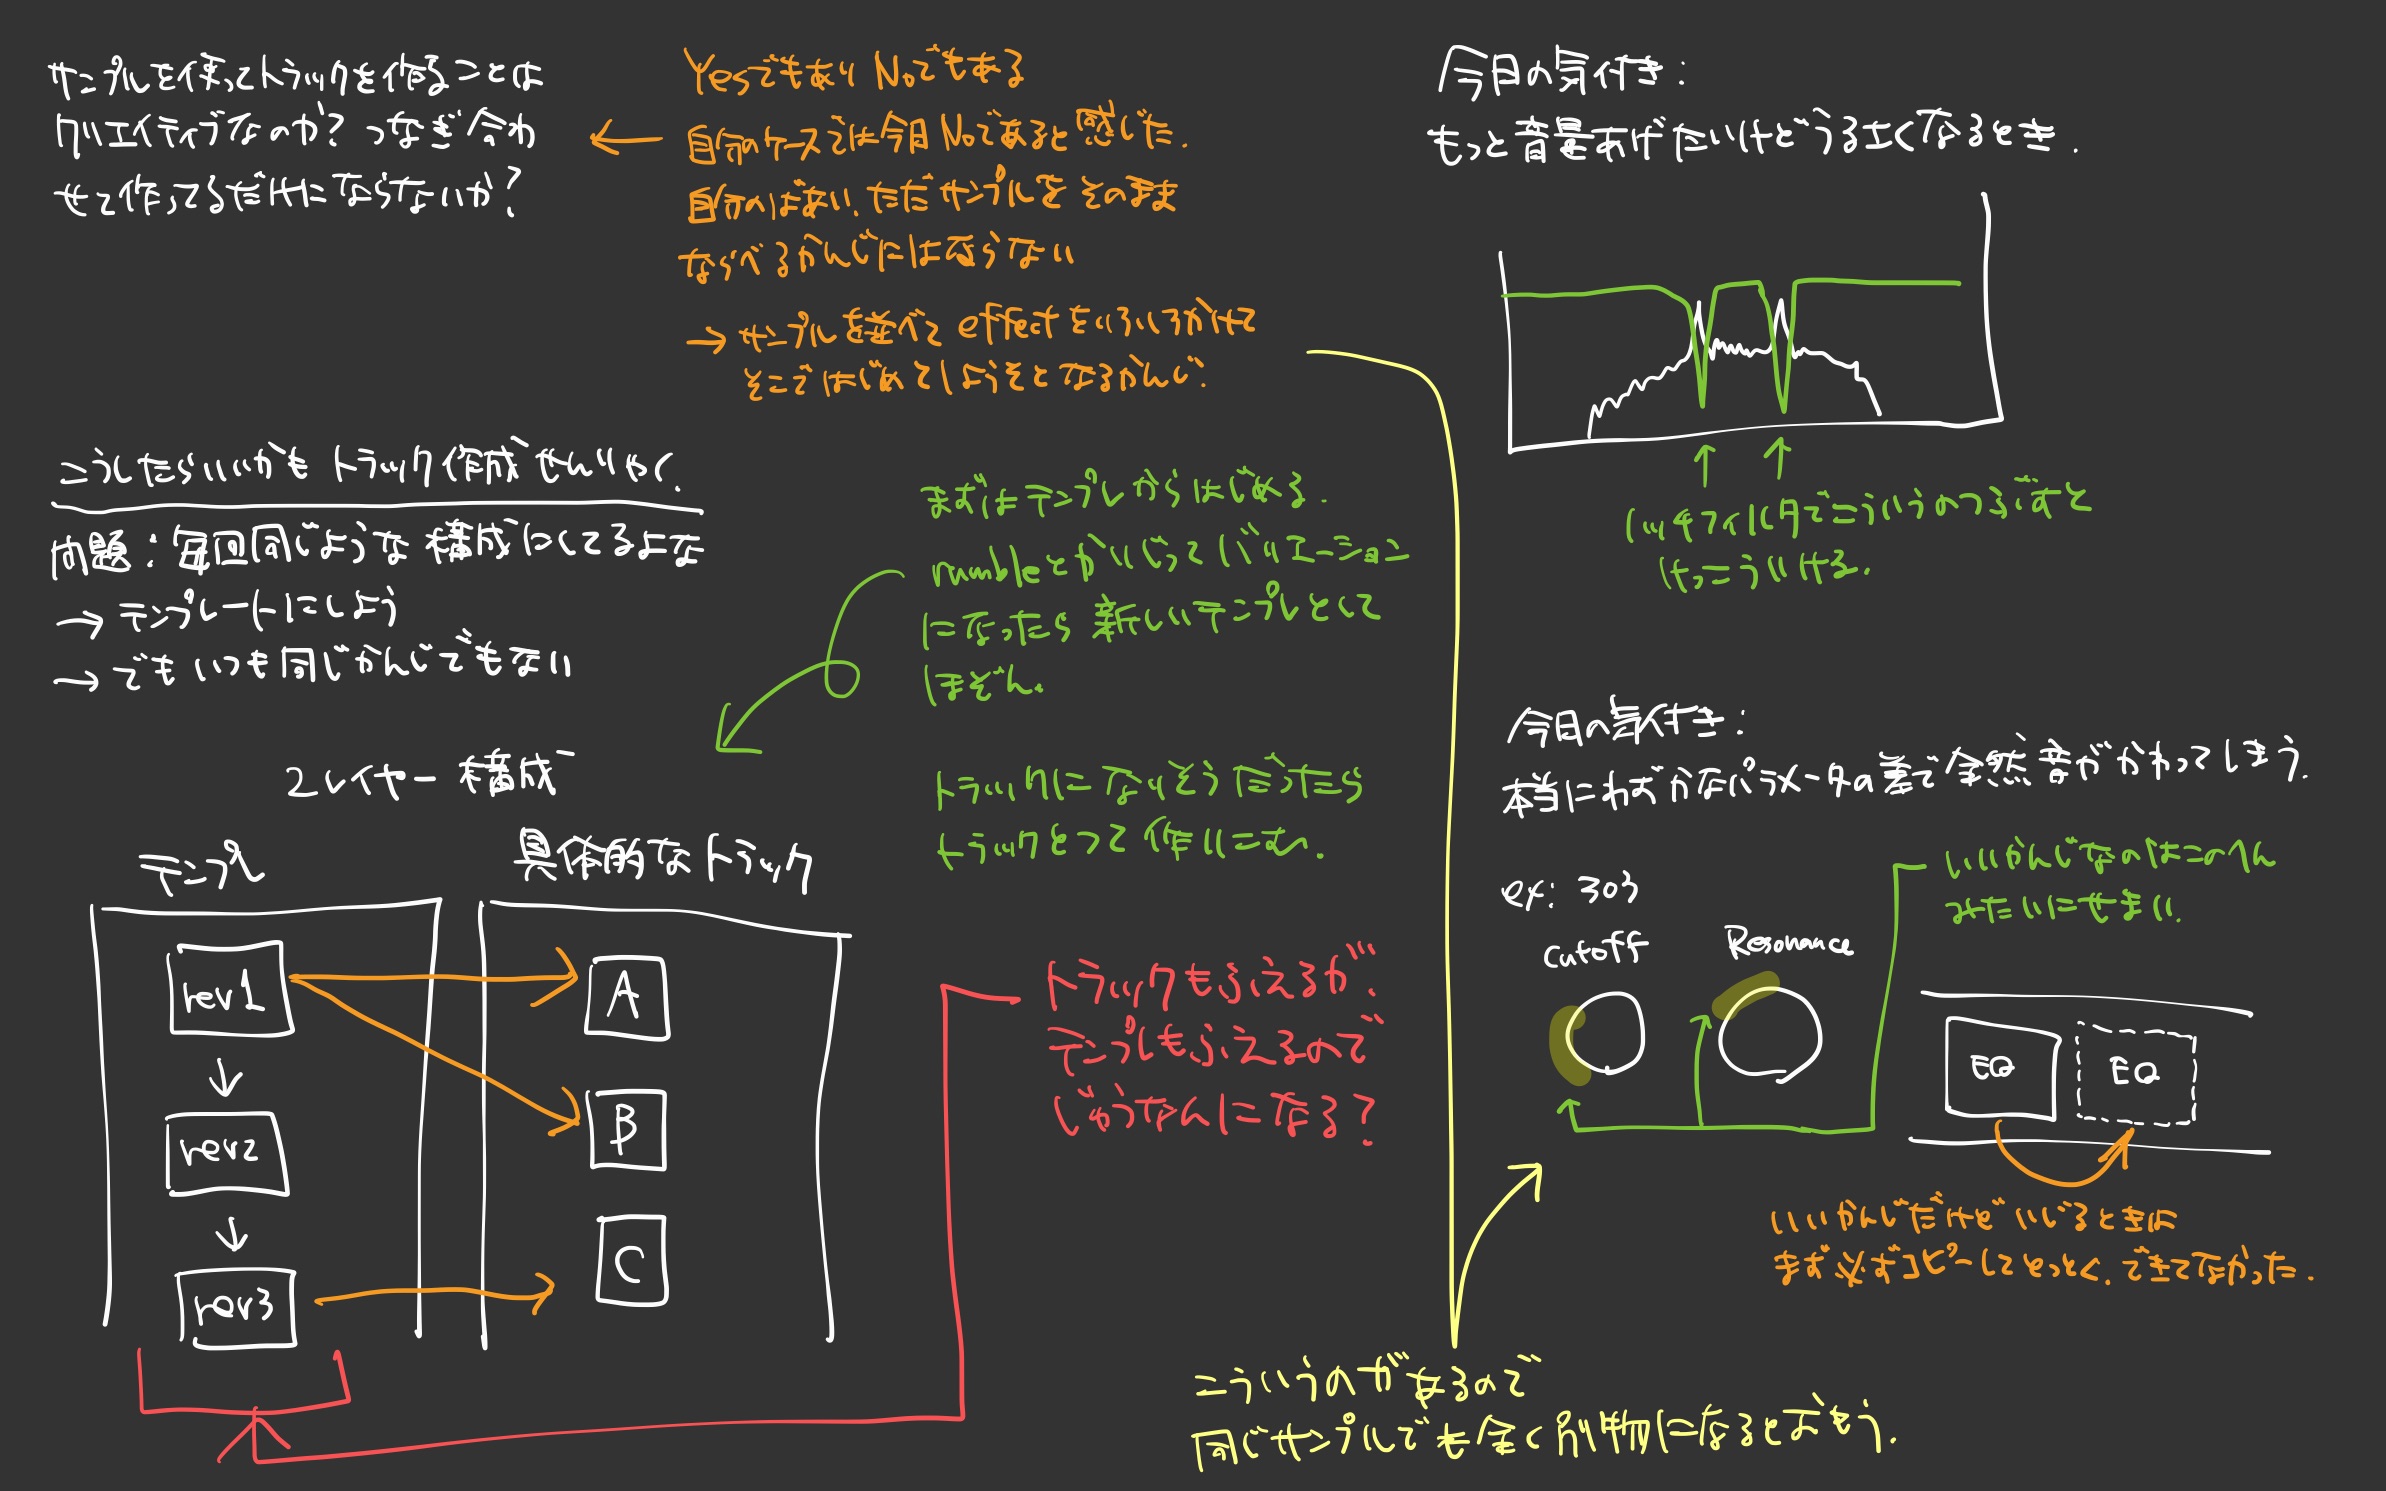 サンプルを使ってトラックを作ることは
クリエイティブなのか？つなぎ合わ
せて作ってるだけにならないか？
Yesでもあり Noでもある
自分のケースでは今日Noであると感じた.
自分のばあい、ただサンプルをそのまま
ならべるかんじにはならない
→ サンプルを並べて effectをいろいろかけて
そこではじめてしようそとなるかんじ.
こうしたらいいかも トラック作成せんりゃく.
問題：毎回同じような構成にしてるよな
→ テンプレートにしよう
→ でもいつも同じかんじでもない
まずはテンプレからはじめる.
rumbleとかいじってバリエーション
になったら新しいテンプレとして
ほぞん.
トラックになりそうだったら
トラックとって作りこむ.
2レイヤー構成
テンプレ
具体的なトラック
rev1
rev2
rev3
A
B
C
トラックもふえるが、
テンプレもふえるので
じゅうなんになる？
今日の気付き：
もっと音量あげたいけどうるさくなるとき.
ノッチフィルタでこういうのつぶすと
けっこういける.
今日の気付き：
本当にわずかなパラメータの差で全然音がかわってしまう.
ex: 303
cutoff
Resonance
いいかんじなのはこのへん
みたいにせまい.
EQ
EQ
いいかんじだけどいじるときは
まず必ずコピーしてとっとく. できてなかった.
こういうのがあるので
同じサンプルでも全く別物になるとおもう.